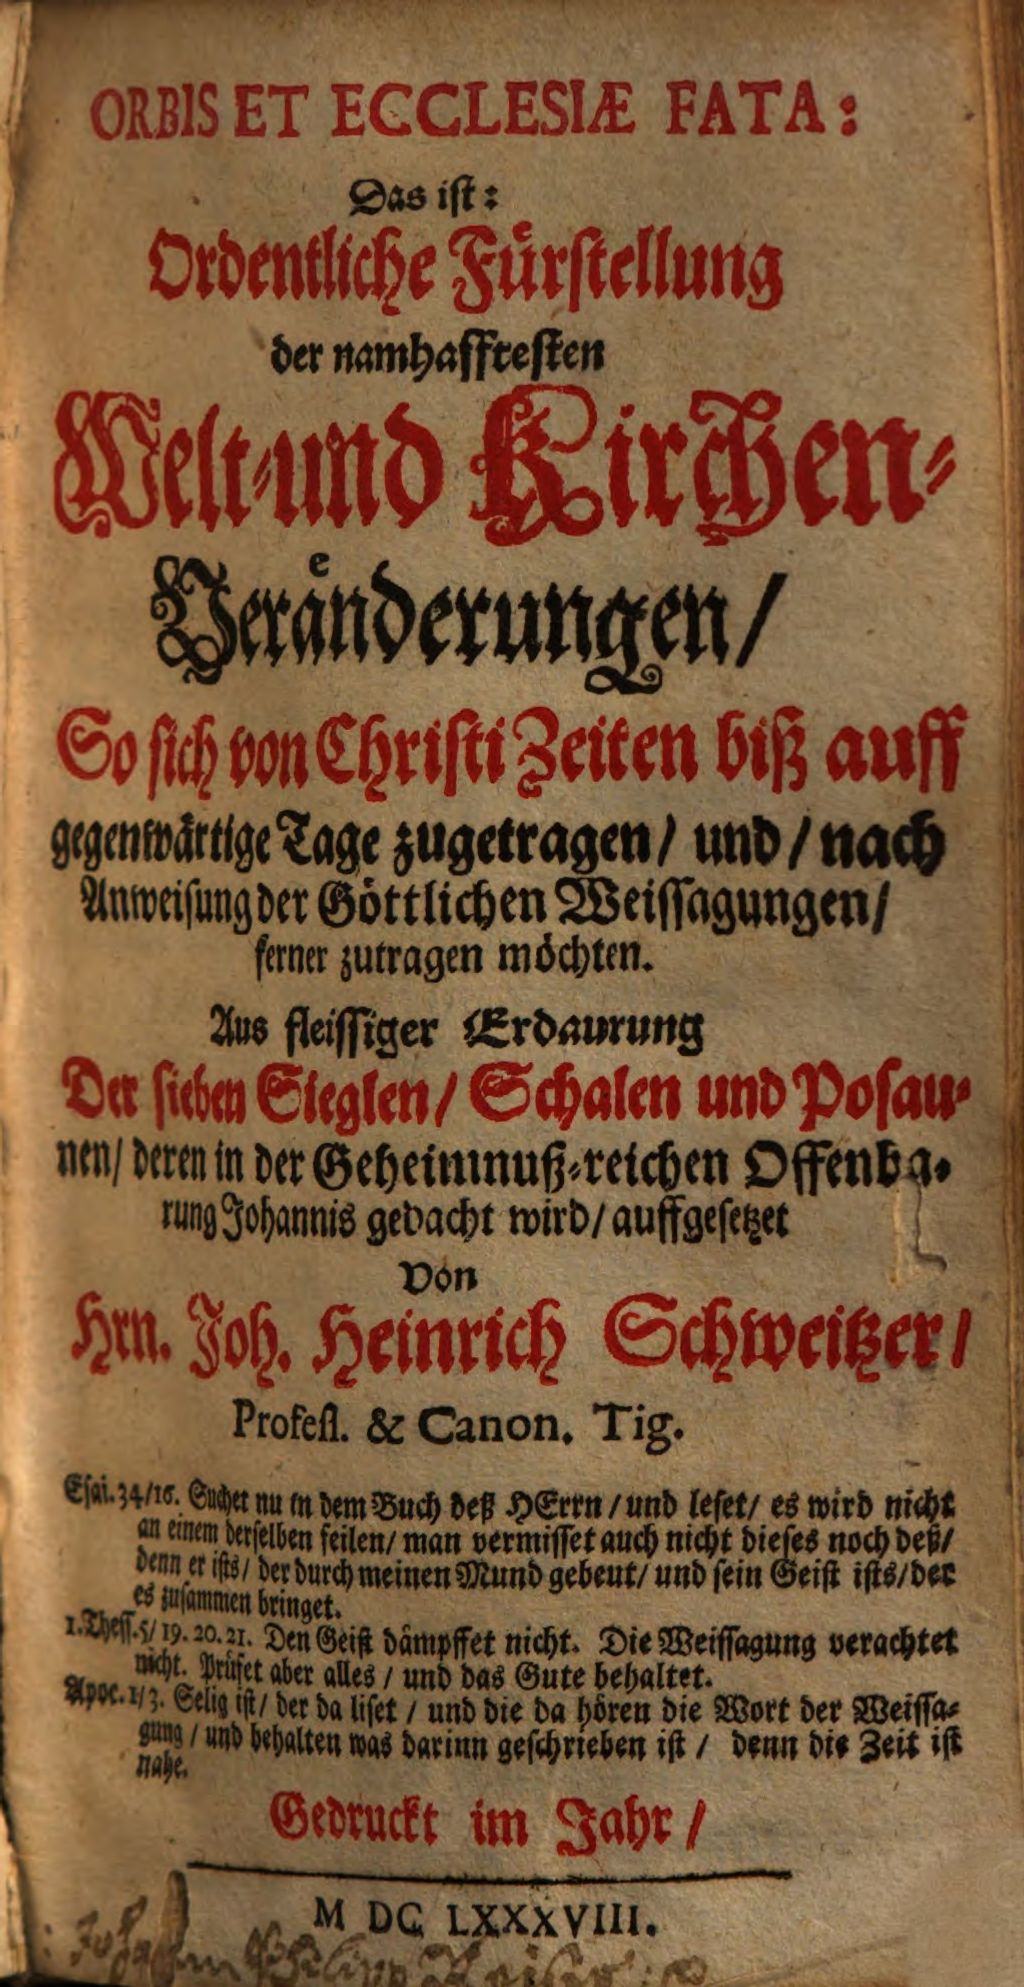 ORBIS ET ECCLESIÆ FATA:
Das ist:
Ordentliche Fürstellung
der namhafftesten
Welt-und Kirchen-
Veränderungen/
So sich von Christi Zeiten biß auff
gegenwärtige Tage zugetragen/ und/ nach
Anweisung der Göttlichen Weissagungen/
ferner zutragen möchten.
Aus fleissiger Erdaurung
Der sieben Sieglen/ Schalen und Posau-
nen/ deren in der Geheimnuß-reichen Offenba-
rung Johannis gedacht wird/ auffgesetzet
Von
Hrn. Joh. Heinrich Schweitzer/
Profess. & Canon. Tig.
Esai. 34/16. Suchet nu in dem Buch deß HErrn/ und leset/ es wird nicht
an einem derselben feilen/ man vermisset auch nicht dieses noch deß/
denn er ists/ der durch meinen Mund gebeut/ und sein Geist ists/ der
es zusammen bringet.
1. Thess. 5/ 19. 20. 21. Den Geist dämpffet nicht. Die Weissagung verachtet
nicht. Prüfet aber alles/ und das Gute behaltet.
Apoc. 1/3. Selig ist/ der da liset/ und die da hören die Wort der Weissa-
gung/ und behalten was darinn geschrieben ist/ denn die Zeit ist
nahe.
Gedruckt im Jahr/
M DC LXXXVIII.